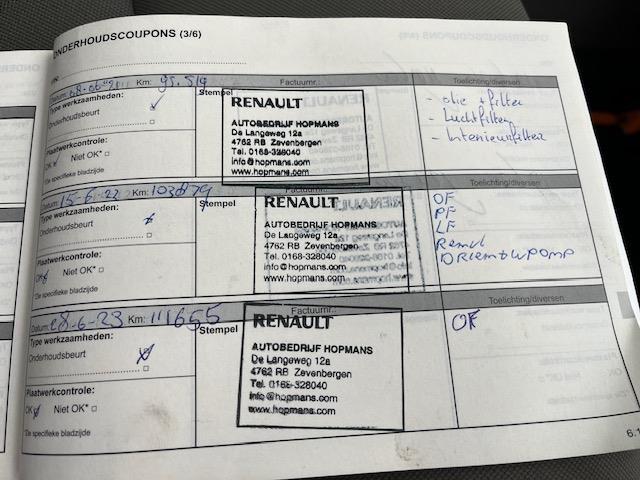 ONDERHOUDSCOUPONS (3/6)
Km: 95.519 Factuurnr.: Toelichting/diversen
Type werkzaamheden:
Onderhoudsbeurt
Plaatwerkcontrole:
OK Niet OK*
*Zie specifieke bladzijde
Stempel
RENAULT
AUTOBEDRIJF HOPMANS
De Langeweg 12a
4762 RB Zevenbergen
Tel. 0168-328040
info@hopmans.com
www.hopmans.com
- olie + filter
- Luchtfilter
- Interieurfilter
Datum: 15-6-22 Km: Toelichting/diversen
Type werkzaamheden:
Onderhoudsbeurt
Plaatwerkcontrole:
OK Niet OK*
*Zie specifieke bladzijde
Stempel
RENAULT
AUTOBEDRIJF HOPMANS
De Langeweg 12a
4762 RB Zevenbergen
Tel. 0168-328040
info@hopmans.com
www.hopmans.com
OF
PF
LF
Datum: 28-6-23 Km: 111655 Factuurnr.: Toelichting/diversen
Type werkzaamheden:
Onderhoudsbeurt
Plaatwerkcontrole:
OK Niet OK*
*Zie specifieke bladzijde
Stempel
RENAULT
AUTOBEDRIJF HOPMANS
De Langeweg 12a
4762 RB Zevenbergen
Tel. 0168-328040
info@hopmans.com
www.hopmans.com
OF